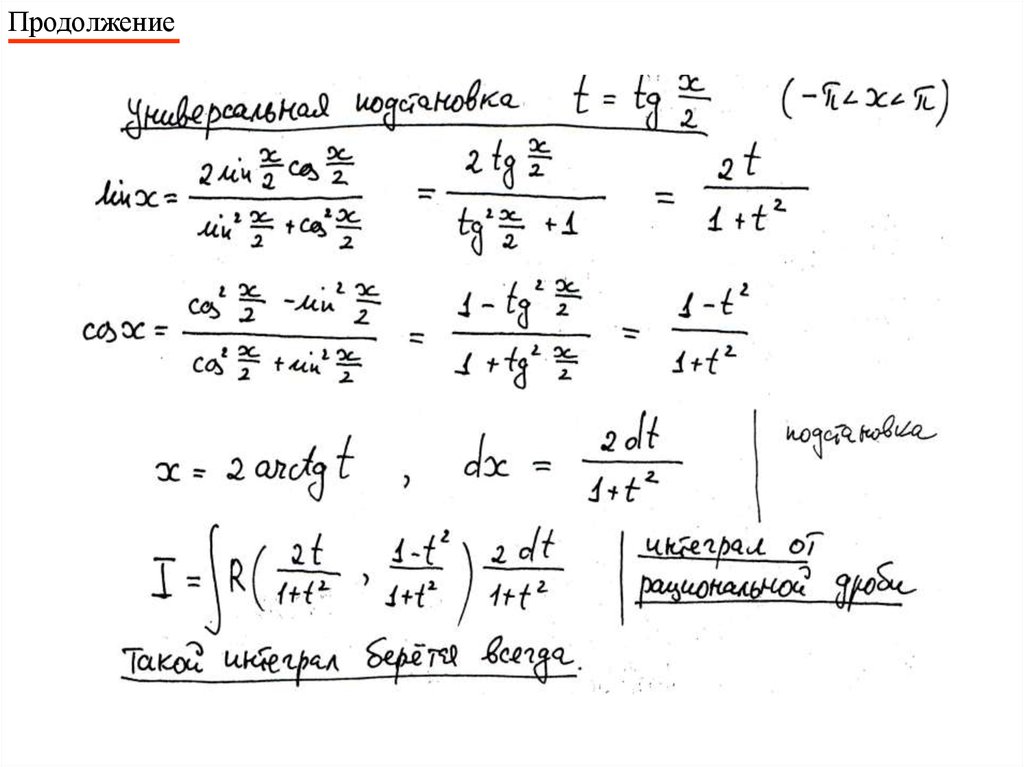 Продолжение
Универсальная подстановка t = tg x/2 (-π < x < π)
sin x = (2 sin x/2 cos x/2)/(sin² x/2 + cos² x/2) = (2 tg x/2)/(tg² x/2 + 1) = 2t/(1+t²)
cos x = (cos² x/2 - sin² x/2)/(cos² x/2 + sin² x/2) = (1 - tg² x/2)/(1 + tg² x/2) = (1-t²)/(1+t²)
x = 2 arctg t , dx = 2dt/(1+t²) | подстановка
I = ∫ R( 2t/(1+t²) , (1-t²)/(1+t²) ) 2dt/(1+t²) | интеграл от
рациональной дроби
Такой интеграл берётся всегда.